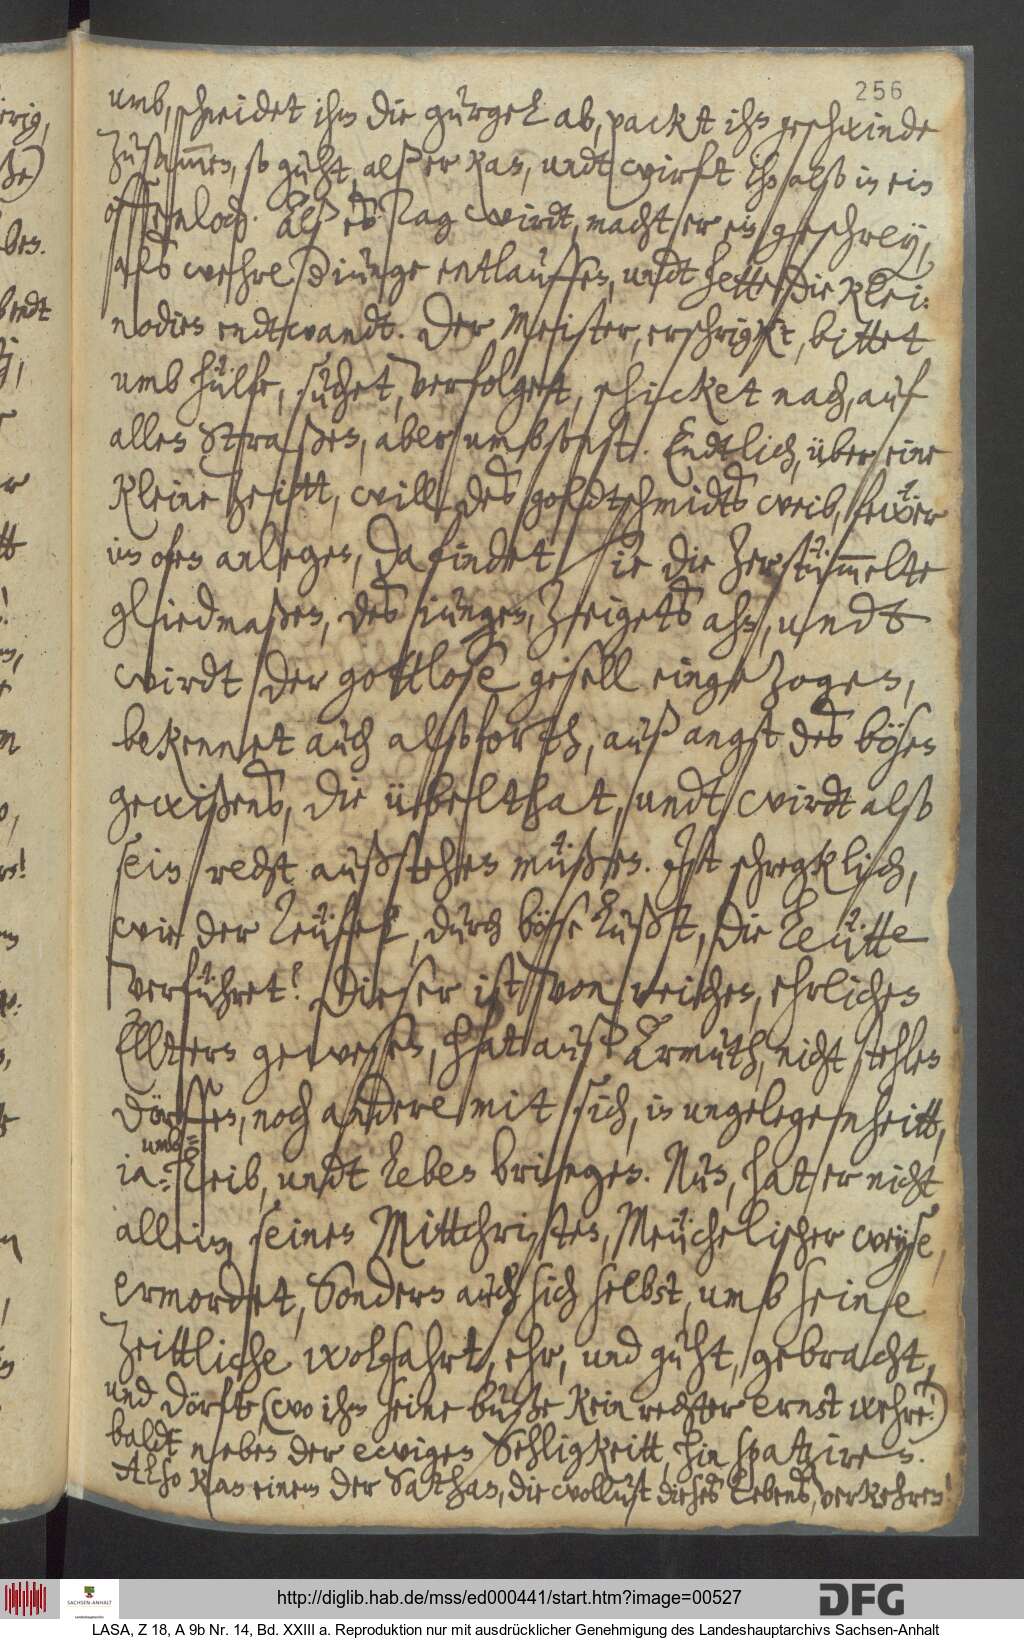 256
umb, schneidet ihm die gurgel ab, packt ihn geschwinde
zusammen, so guht, alß er kan, undt wirft ihn also in ein
offenloch. Alß es Tag wirdt, macht er ein geschrey,
alß wehre d iunge entlauffen, undt hette die klei:
nodien endtwandt. Der Meister, erschrigkt, bittet
umb hülfe, suchet, verfolget, schicket nach, auf
allen Straßen, aber umbsonst. Endtlich, über eine
kleine zeitt, will des goldtschmidts weib, feüer
im ofen anlegen, da findet Sie die zerstümmelte
gliedmaßen, des iungen, zeigets ahn, undt
wirdt der gottlose gesell eingezogen,
bekennet auch alsoforth, auß angst des bösen
gewißens, die übelthat, undt wirdt also
sein recht außstehen müßen. Ist schregklich,
wie der Teüffel, durch böse Lußt, die Leütte
verführet! Dieser ist von reichen, ehrlichen
Elltern gewesen, hat auß Armuth, nicht stehlen
dörffen, noch andere mit sich, in ungelegenheitt,
umb=
ia: Leib, undt Leben bringen. Nun, hat er nicht
allein seinen Mittchristen, Meüchelischer weyse,
ermordet, Sondern auch sich selbst, umb seine
zeittliche wolfahrt, ehr, und guht, gebracht,
und dörfte (wo ihm seine buße kein rechter ernst wehre!)
baldt neben der ewigen Sehligkeitt, hin spatziren.
Also kan einem der Sathan, die wollust dieses Lebens, verkehren!
http://diglib.hab.de/mss/ed000441/start.htm?image=00527
DFG
SACHSEN-ANHALT
LASA, Z 18, A 9b Nr. 14, Bd. XXIII a. Reproduktion nur mit ausdrücklicher Genehmigung des Landeshauptarchivs Sachsen-Anhalt